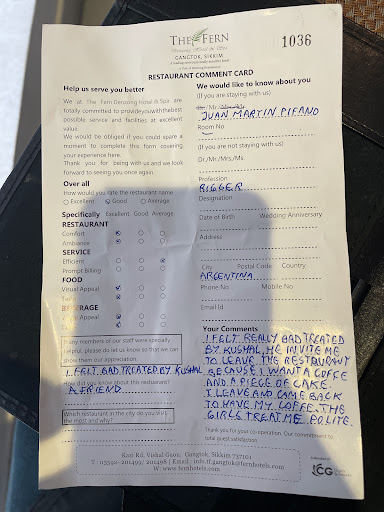 THE FERN
Denzong Hotel & Spa
GANGTOK, SIKKIM
1036
RESTAURANT COMMENT CARD
Help us serve you better
We at The Fern Denzong Hotel & Spa are
totally committed to provide you with the best
possible service and facilities at excellent
value.
We would be obliged if you could spare a
moment to complete this form covering
your experience here.
Thank you for being with us and we look
forward to seeing you once again.
Over all
How would you rate the restaurant name
Excellent Good Average
Specifically Excellent Good Average
RESTAURANT
Comfort
Ambiance
SERVICE
Efficient
Prompt Billing
FOOD
Visual Appeal
Taste
BEVERAGE
Visual Appeal
Many members of our staff were specially
helpful, please do let us know so that we can
show them our appreciation.
I FELT BAD TREATED BY KUSHAL
How did you know about this restaurant?
A FRIEND
Which restaurant in the city do you visit
the most and why?
We would like to know about you
(If you are staying with us)
Dr./Mr./Mrs./Ms.
JUAN MARTIN PIFANO
Room No
(If you are not staying with us)
Dr./Mr./Mrs./Ms.
Profession
RIGGER
Designation
Date of Birth Wedding Anniversary
Address
City Postal Code Country
ARGENTINA
Phone No Mobile No
Email Id
Your Comments
I FELT REALLY BAD TREATED
BY KUSHAL, HE INVITE ME
TO LEAVE THE RESTAURANT
BECAUSE I WANT A COFFE
AND A PIECE OF CAKE.
I LEAVE AND CAME BACK
TO HAVE MY COFFE. THE
GIRLS TREAT ME POLITE.
Thank you for your co-operation. Our commitment to
total guest satisfaction.
Kazi Rd, Vishal Gaon, Gangtok, Sikkim 737101
T : 03592- 201499/ 201498 | Email : info.tf.gangtok@fernhotels.com
W : www.fernhotels.com
CG